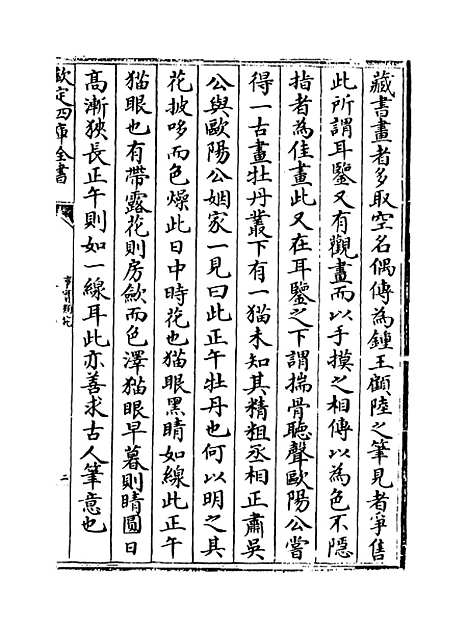 藏書畫者多取空名偶傳為鍾王顧陸之筆見者爭售
此所謂耳鑒又有觀畫而以手摸之相傳以為色不隱
指者為佳畫此又在耳鑒之下謂揣骨聽聲歐陽公嘗
得一古畫牡丹叢下有一猫未知其精粗丞相正肅吳
公與歐陽公姻家一見曰此正午牡丹也何以明之其
花披哆而色燥此日中時花也猫眼黑睛如線此正午
猫眼也有帶露花則房歛而色澤猫眼早暮則睛圓日
高漸狹長正午則如一線耳此亦善求古人筆意也
欽定四庫全書
事實類苑
二